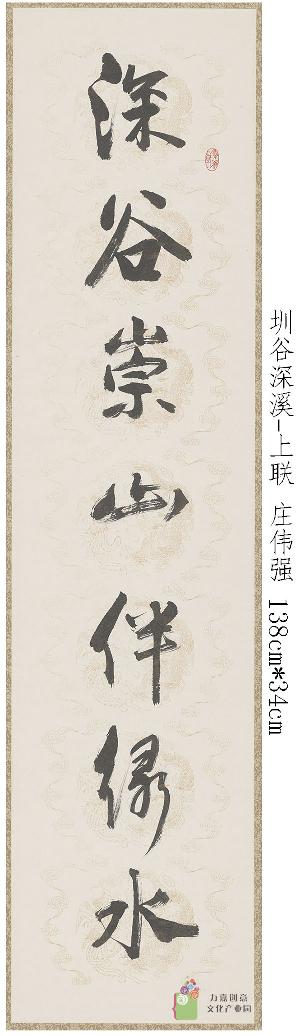 深谷崇山伴绿水
圳谷深溪-上联 庄伟强 138cm*34cm
力嘉创意
文化产业园